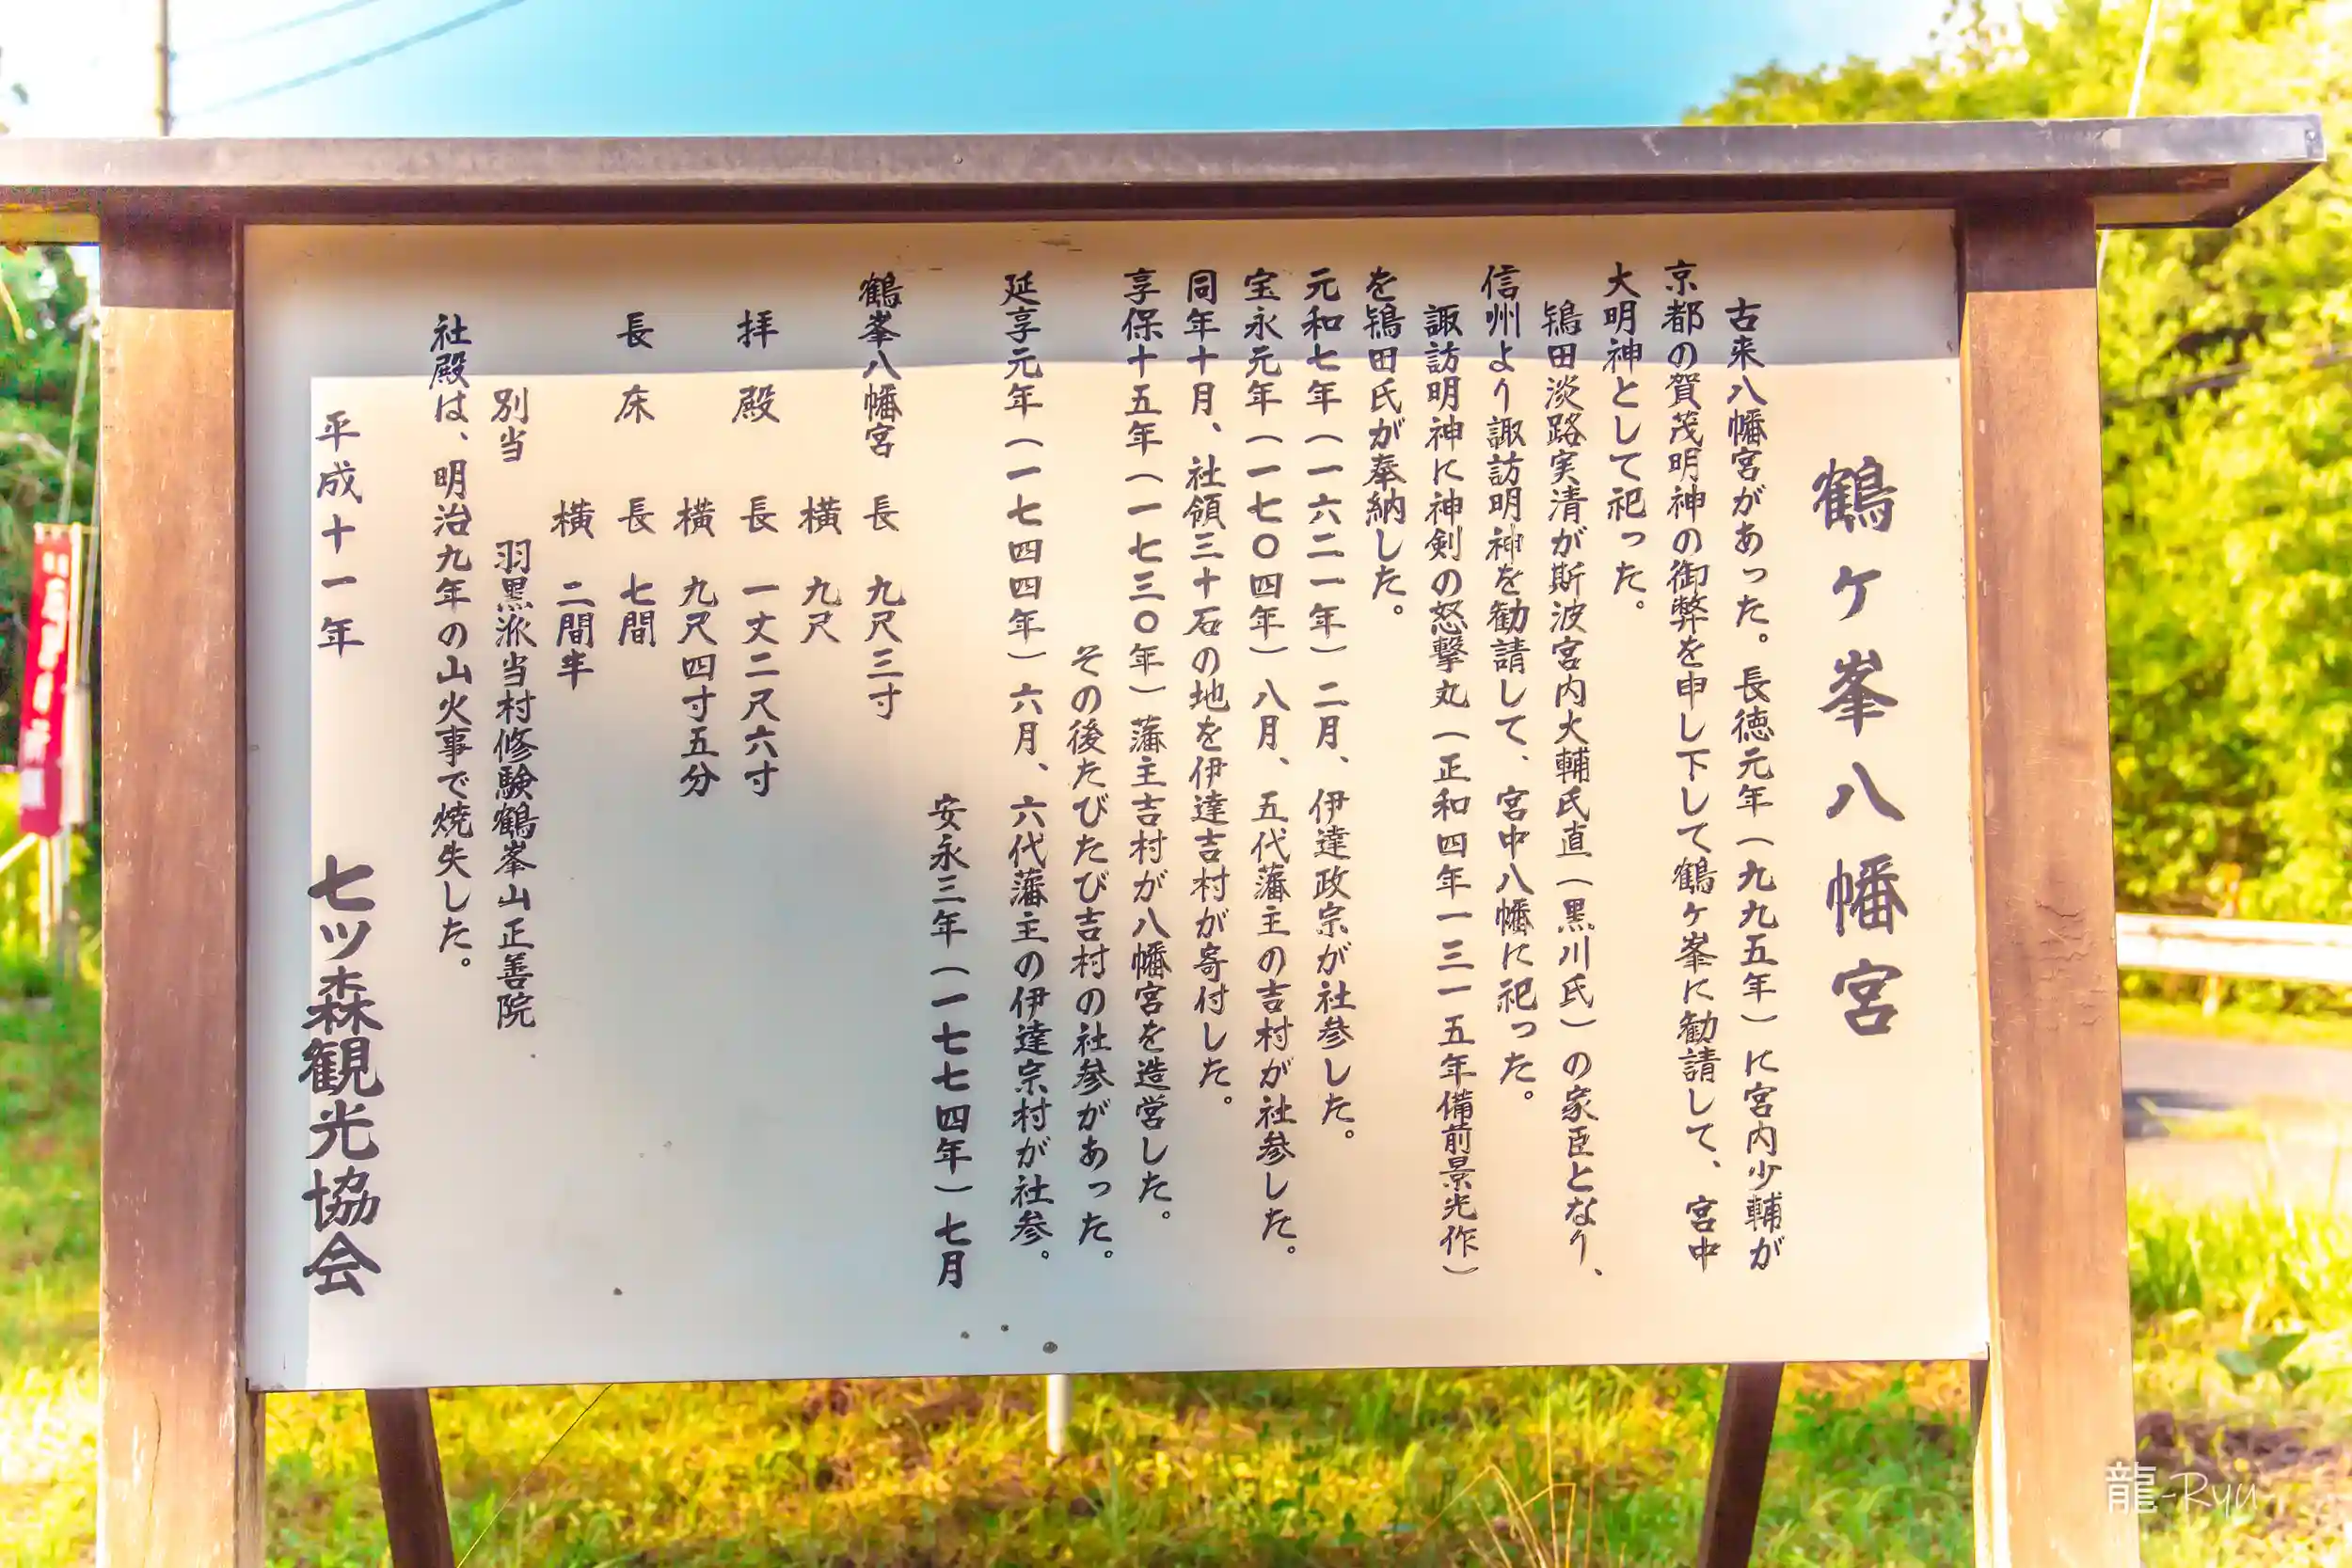 鶴ケ峯八幡宮
古来八幡宮があった。長徳元年(九九五年)に宮内少輔が
京都の賀茂明神の御弊を申し下して鶴ヶ峯に勧請して、宮中
大明神として祀った。
鴇田淡路実清が斯波宮内大輔氏直(黒川氏)の家臣となり、
信州より諏訪明神を勧請して、宮中八幡に祀った。
諏訪明神に神剣の怒撃丸(正和四年一三一五年備前景光作)
を鴇田氏が奉納した。
元和七年(一六二一年)二月、伊達政宗が社参した。
宝永元年(一七〇四年)八月、五代藩主の吉村が社参した。
同年十月、社領三十石の地を伊達吉村が寄付した。
享保十五年(一七三〇年)藩主吉村が八幡宮を造営した。
その後たびたび吉村の社参があった。
延享元年(一七四四年)六月、六代藩主の伊達宗村が社参。
安永三年(一七七四年)七月
鶴峯八幡宮 長 九尺三寸
横 九尺
拝殿 長 一丈二尺六寸
横 九尺四寸五分
長床 長 七間
横 二間半
別当 羽黒派当村修験鶴峯山正善院
社殿は、明治九年の山火事で焼失した。
平成十一年 七ツ森観光協会
龍-Ryu-